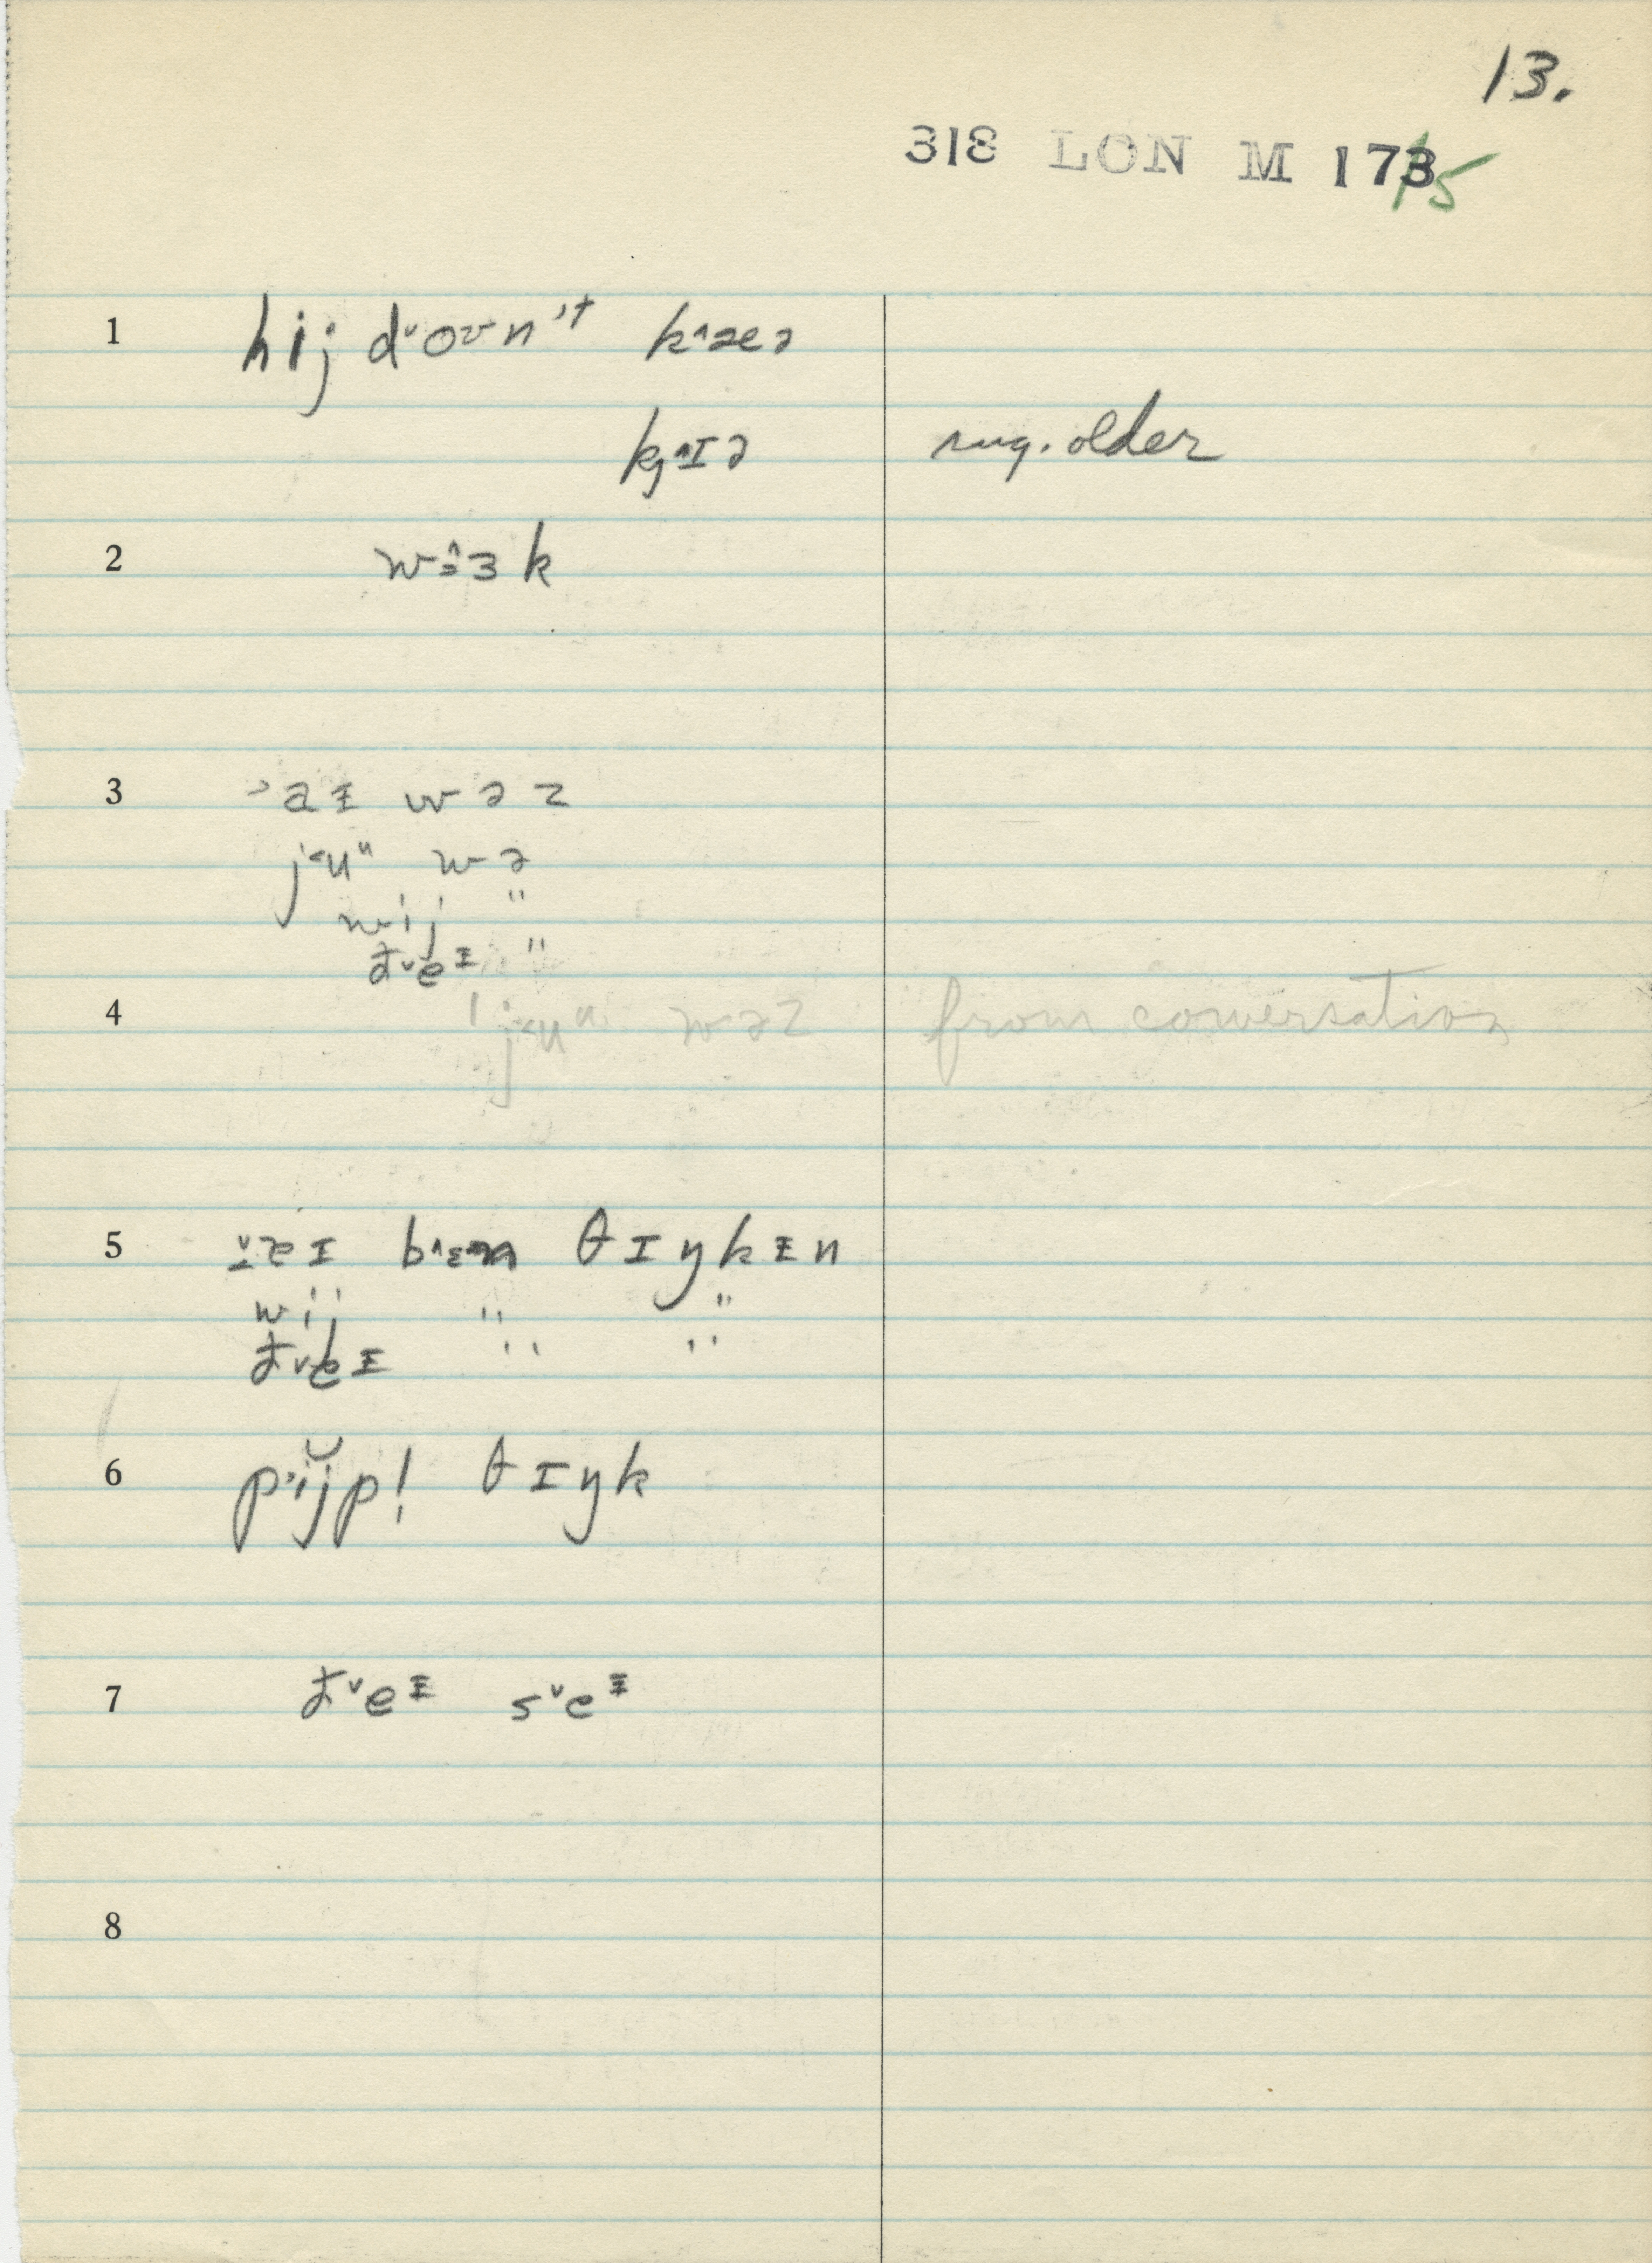 13.
318 LON M 173 15
1 hij dᵛoʊn't k^æə
kj^ɪə sug. older
2 w^ɜk
3 ʾaɪ wəz
j˂uᵘ wə
wij "
ðᵛeɪ "
4 j˂uᵘ wəz from conversation
5 bᵊn θɪŋkɪn
wij " "
ðᵛeɪ " "
6 pijp! θɪŋk
7 ðᵛeᶦ sᵛeᶦ
8